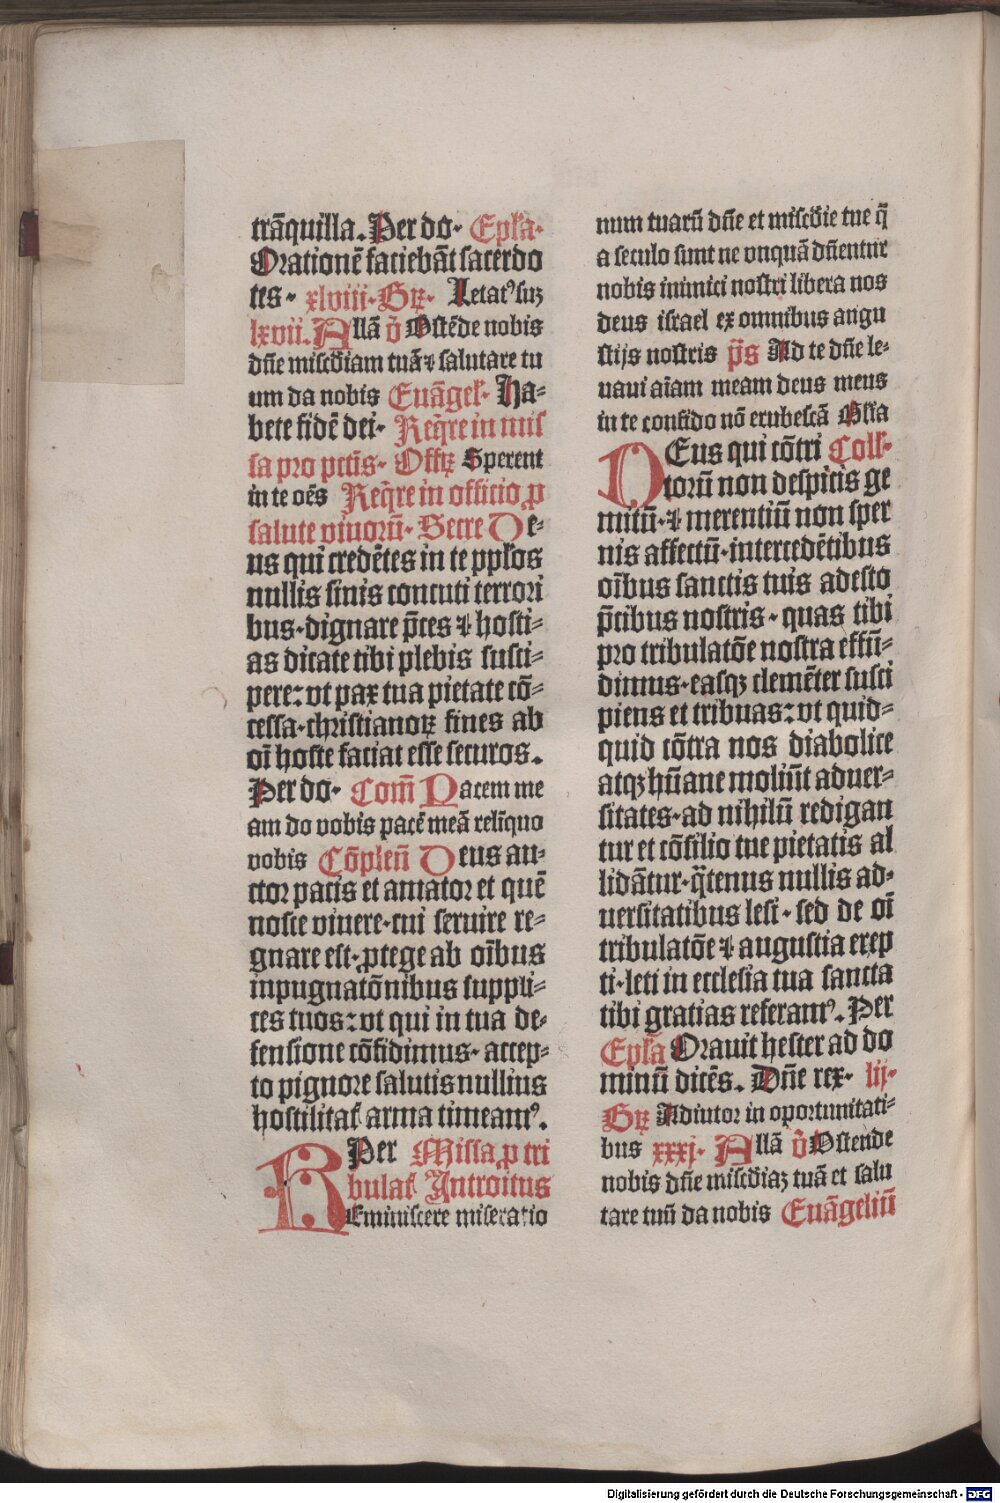 trãquilla. Per do· Epl̃a·
Orationẽ faciebãt sacerdo
tes· xlviii·Grꝫ· Letatꝰ suꝫ
lxvii. Allã ꝟ̃ Ostẽde nobis
dñe miscďiam tuã ⁊ salutare tu
um da nobis Euãgel̃· Ha⸗
bete fidẽ dei· Req̃re in mis
sa pro pctĩs· Offꝫ Sperent
in te oẽs Req̃re in officio ꝓ
salute viuorũ· Secre De⸗
us qui credẽtes in te ppl̃os
nullis sinis concuti terrori
bus·dignare p̃ces ⁊ hosti⸗
as dicate tibi plebis susci⸗
pere: vt pax tua pietate cõ⸗
cessa·christianoꝝ fines ab
oĩ hoste faciat esse securos.
Per do· Com̃ Pacem me
am do vobis pacẽ meã relĩquo
vobis Cõpleñ Deus au⸗
ctor pacis et amator et quẽ
nosce viuere·cui seruire re⸗
gnare est·ꝓtege ab oĩbus
inpugnatõnibus suppli⸗
ces tuos: vt qui in tua de⸗
fensione cõfidimus· accep⸗
to pignore salutis nullius
hostilitat̃ arma timeamꝰ.
Per Missa ꝓ tri
bulat̃ Introitus
REminiscere miseratio
num tuarũ dñe et miscďie tue q̃
a seculo sunt ne vnquã dñentur
nobis inimici nostri libera nos
deus israel ex omnibus angu
stijs nostris p̃s Ad te dñe le⸗
uaui aĩam meam deus meus
in te confido nõ erubescã Gl̃ia
DEus qui cõtri Coll̃·
torũ non despicis ge
mitũ·⁊ merentiũ non sper
nis affectũ·intercedẽtibus
oĩbus sanctis tuis adesto
p̃cibus nostris·quas tibi
pro tribulatõe nostra effũ⸗
dimus·easqꝫ clemẽter susci
piens et tribuas: vt quid⸗
quid cõtra nos diabolice
atqꝫ hũane moliũt aduer⸗
sitates·ad nihilũ redigan
tur et cõsilio tue pietatis al
lidãtur·q̃tenus nullis ad⸗
uersitatibus lesi·sed de oĩ
tribulatõe ⁊ angustia erep
ti·leti in ecclesia tua sancta
tibi gratias referamꝰ. Per
Epl̃a Orauit hester ad do
minũ dicẽs. Dñe rex· lij·
Grꝫ Adiutor in oportunitati⸗
bus xxxj· Allã ꝟ̃ Ostende
nobis dñe miscďiaꝫ tuã et salu
tare tuũ da nobis Euãgeliũ
Digitalisierung gefördert durch die Deutsche Forschungsgemeinschaft - DFG